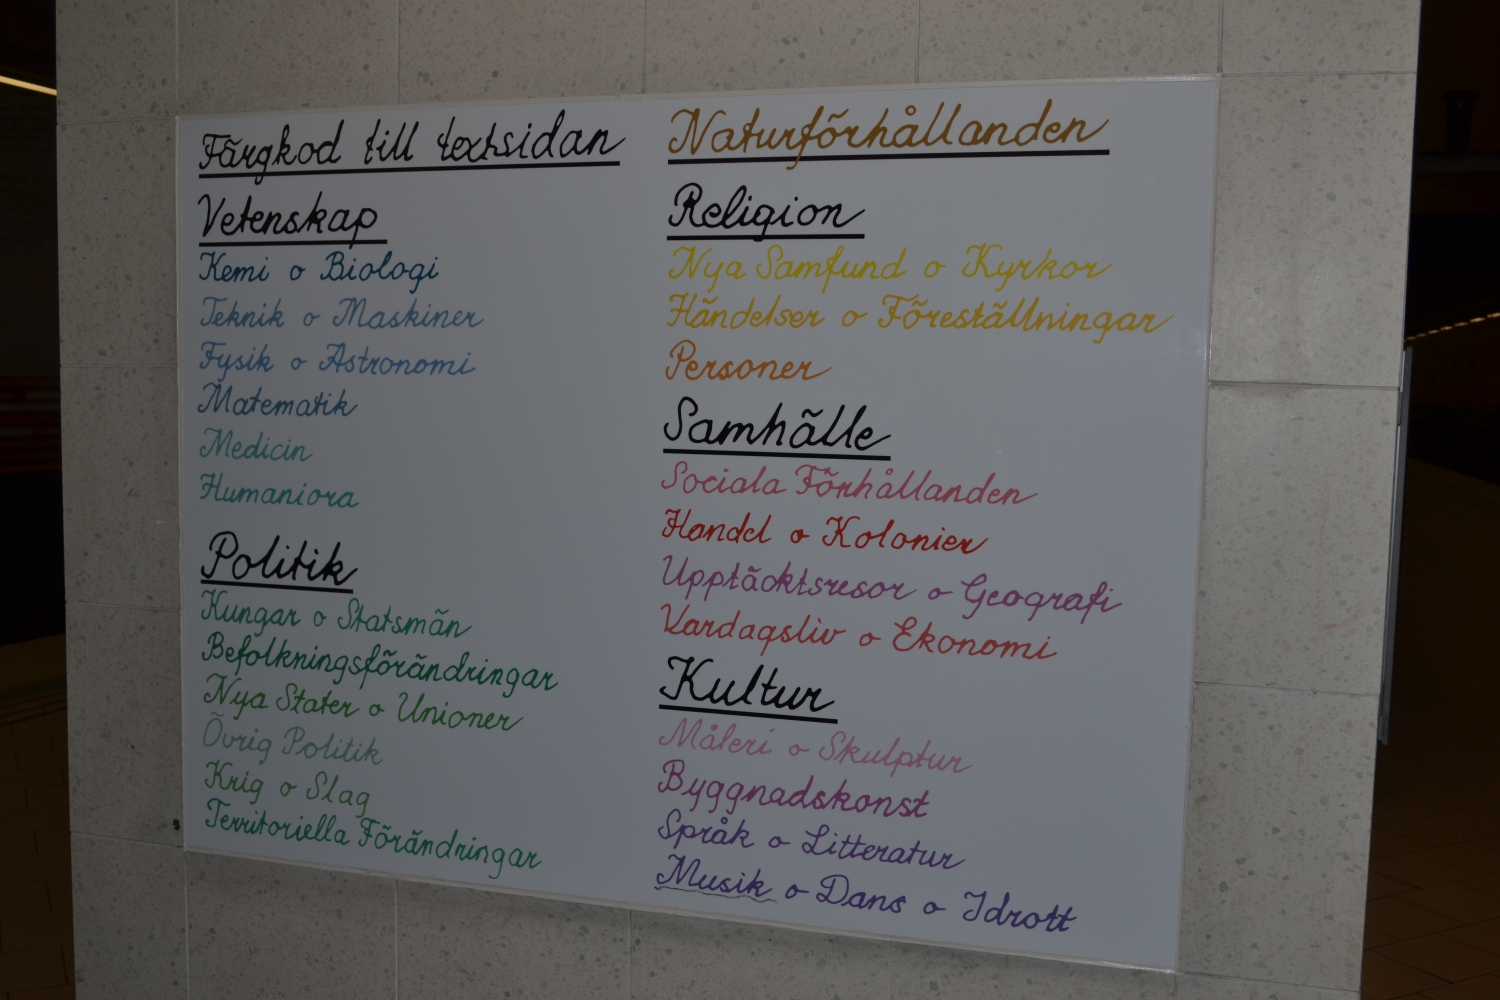 Färgkod till textsidan
Vetenskap
Kemi o Biologi
Teknik o Maskiner
Fysik o Astronomi
Matematik
Medicin
Humaniora
Politik
Kungar o Statsmän
Befolkningsförändringar
Nya Stater o Unioner
Övrig Politik
Krig o Slag
Territoriella Förändringar
Naturförhållanden
Religion
Nya Samfund o Kyrkor
Händelser o Föreställningar
Personer
Samhälle
Sociala Förhållanden
Handel o Kolonier
Upptäcktsresor o Geografi
Vardagsliv o Ekonomi
Kultur
Måleri o Skulptur
Byggnadskonst
Språk o Litteratur
Musik o Dans o Idrott